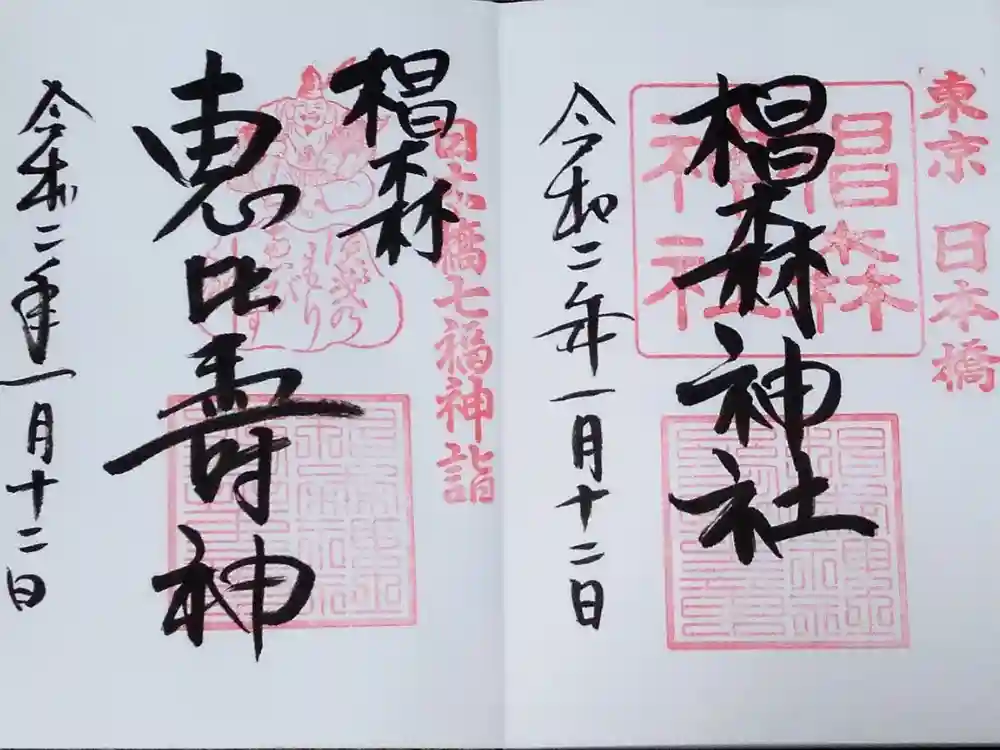 東京 日本橋
椙森神社
椙森神社
令和二年一月十二日
日本橋七福神詣
椙森
恵比壽神
令和二年一月十二日